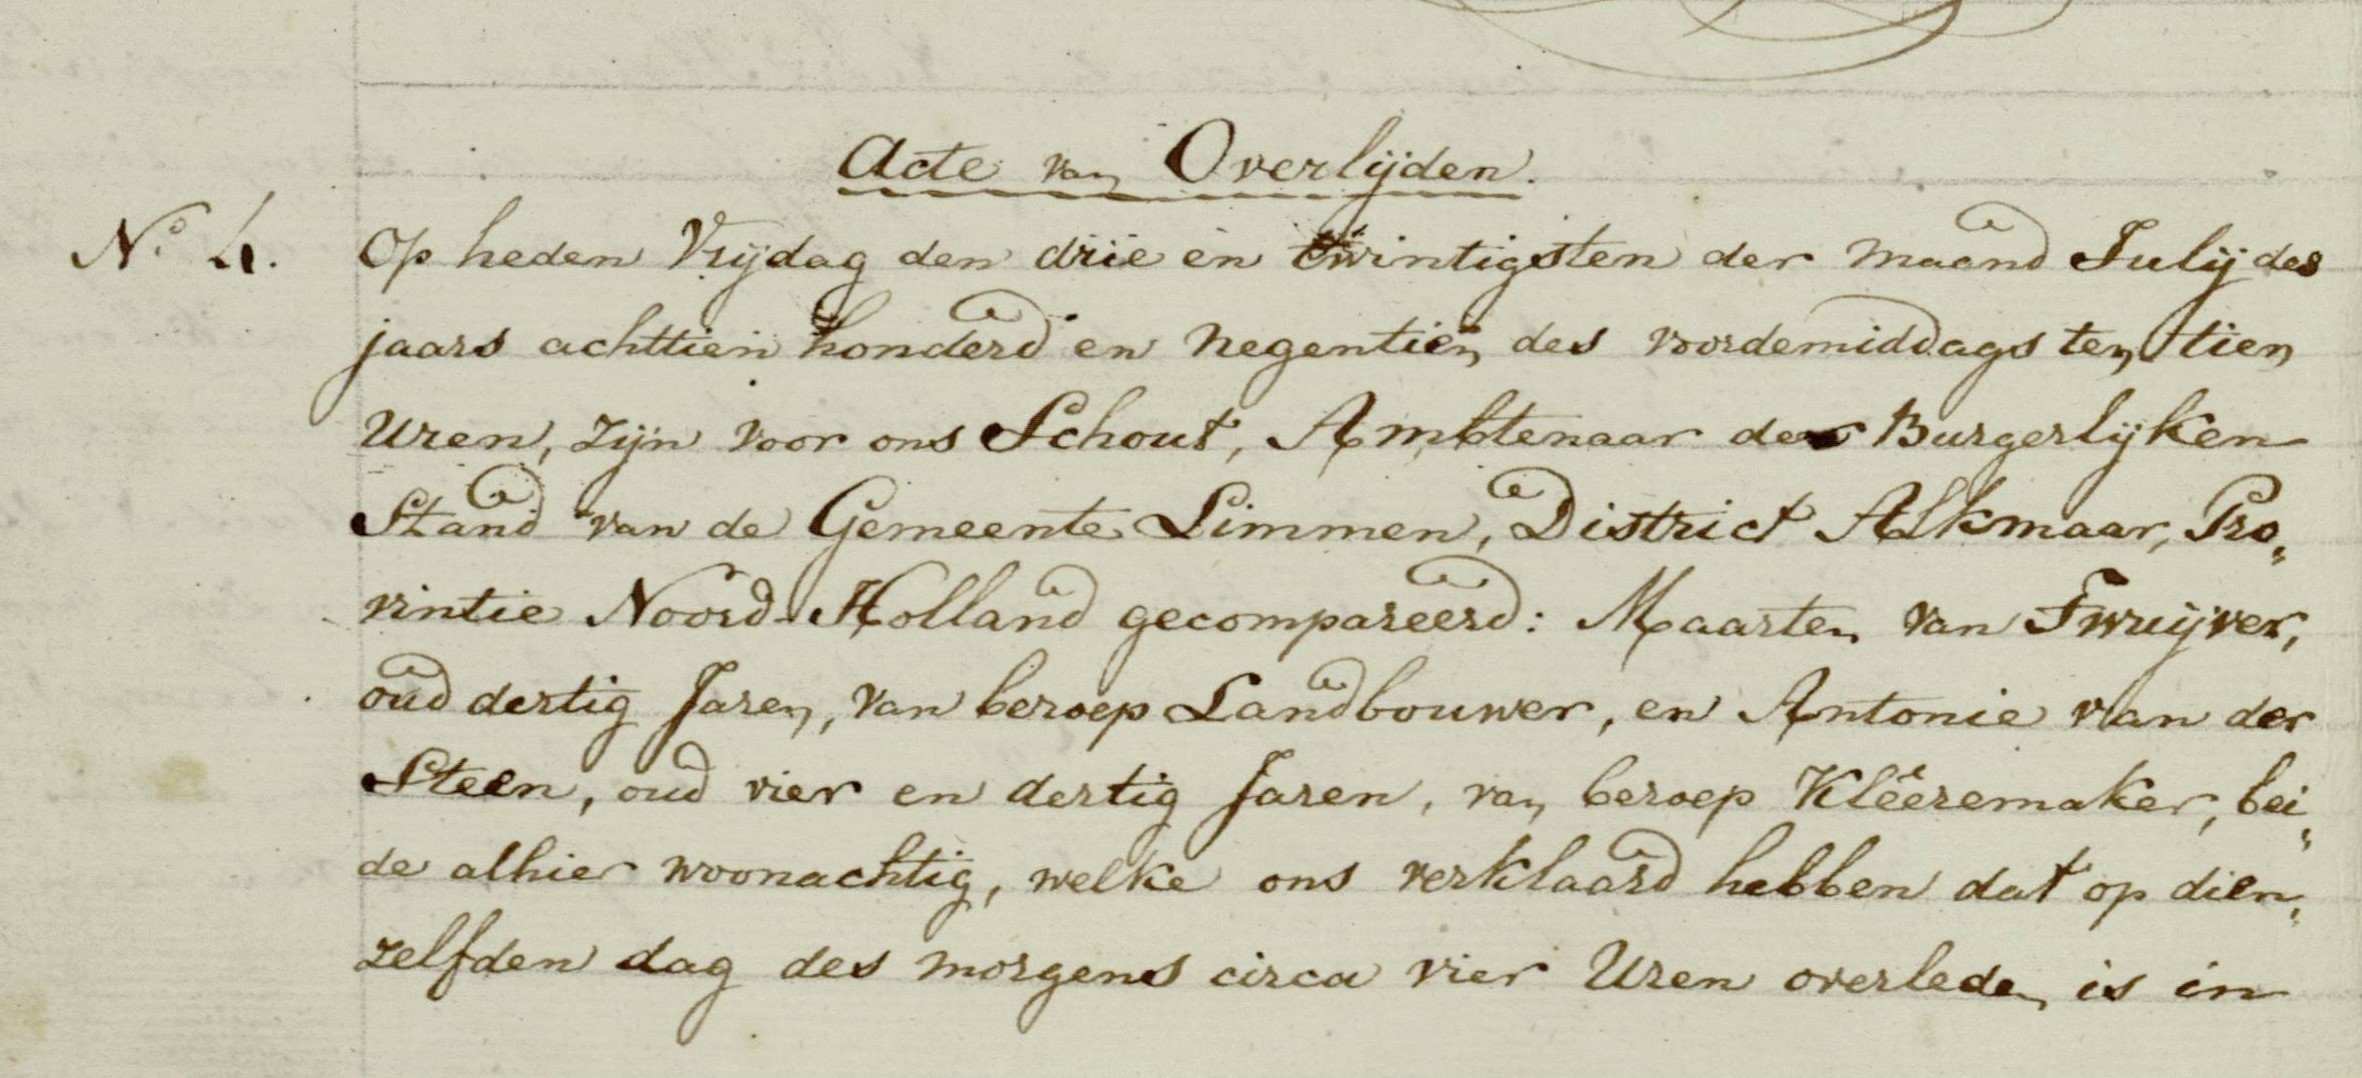 Acte van Overlijden.
No 4. Op heden Vrijdag den drie en twintigsten der maand Julij des
jaars achttien honderd en negentien, des voordemiddags ten tien
Uren, zijn voor ons Schout, Ambtenaar der Burgerlijken
Stand van de Gemeente Limmen, District Alkmaar, Pro„
vintie Noord-Holland gecompareerd: Maarten van Twuijver,
oud dertig Jaren, van beroep Landbouwer, en Antonie van der
Steen, oud vier en dertig Jaren, van beroep Kléeremaker, bei„
de alhier woonachtig, welke ons verklaard hebben dat op dien„
zelfden dag des morgens circa vier Uren overleden is in